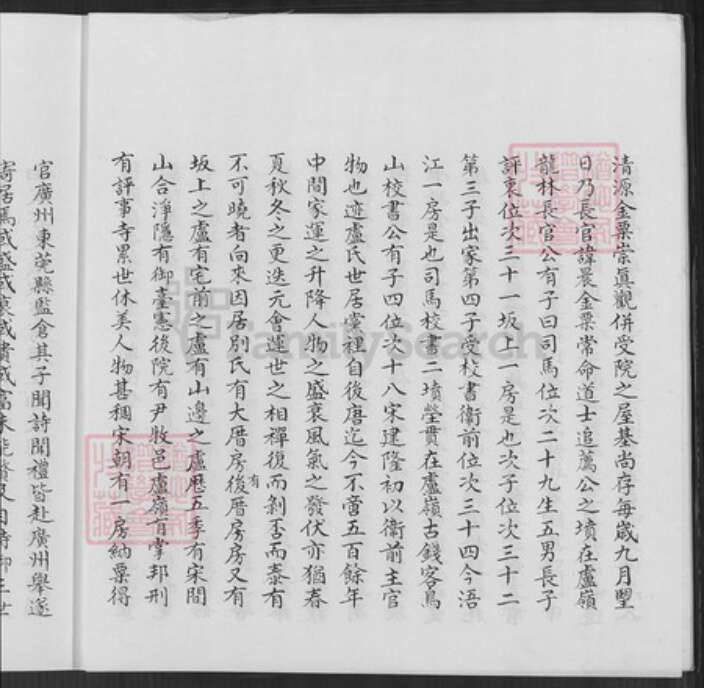 清源金粟崇眞觀併受院之屋基尚存每歲九月
日乃長官諱晨金粟常命道士追薦公之墳在盧嶺
龍林長官公有子曰司馬位次二十九生五男長子
評東位次三十一坂上一房是也次子位次三十二
第三子出家第四子受校書衛前位次三十四今浯
江一房是也司馬校書二墳塋貫在盧嶺古錢客鳥
山校書公有子四位次十八宋建隆初以衛前主官
物也迹盧氏世居黨裡自後唐迄今不啻五百餘年
中間家運之升降人物之盛衰風氣之發伏亦猶春
夏秋冬之更迭元會運世之相禪復而剝否而泰有
不可曉者向來因居別氏有大厝房後有厝房房又有
坂上之盧有宅前之盧有山邊之盧歷五季有宋間
山合淨隱有御臺憲後院有尹牧邑盧嶺有掌邦刑
有評事寺累世休美人物甚稠宋朝有一房納粟得
官廣州東莞縣監倉其子聞詩聞禮皆赴廣州舉遂
寄居焉或盛或衰或貴或富
FamilySearch